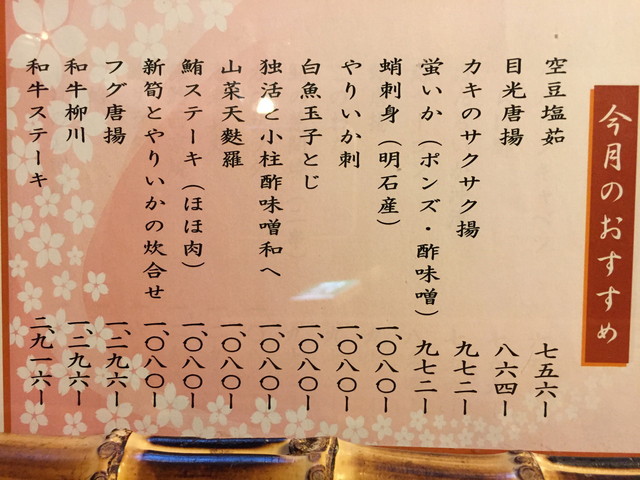 今月のおすすめ
空豆塩茹 七五六ー
目光唐揚 八六四ー
カキのサクサク揚 九七二ー
蛍いか（ポンズ・酢味噌） 九七二ー
蛸刺身（明石産） 一、〇八〇ー
やりいか刺 一、〇八〇ー
白魚玉子とじ 一、〇八〇ー
独活と小柱酢味噌和へ 一、〇八〇ー
山菜天麩羅 一、〇八〇ー
鮪ステーキ（ほほ肉） 一、〇八〇ー
新筍とやりいかの炊合せ 一、〇八〇ー
フグ唐揚 一、二九六ー
和牛柳川 一、二九六ー
和牛ステーキ 二、九一六ー